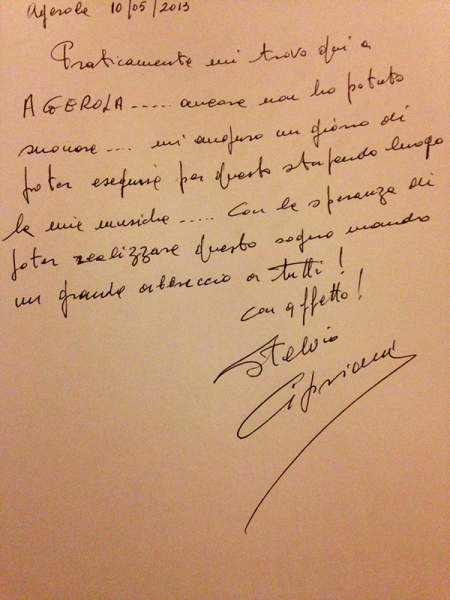 Agerola 10/05/2013
Praticamente mi trovo qui a
AGEROLA..... ancora non ho potuto
suonare.... mi auguro un giorno di
poter eseguire per questo stupendo luogo
le mie musiche..... Con la speranza di
poter realizzare questo sogno mando
un grande abbraccio a tutti!
con affetto!
Stelvio
Cipriani